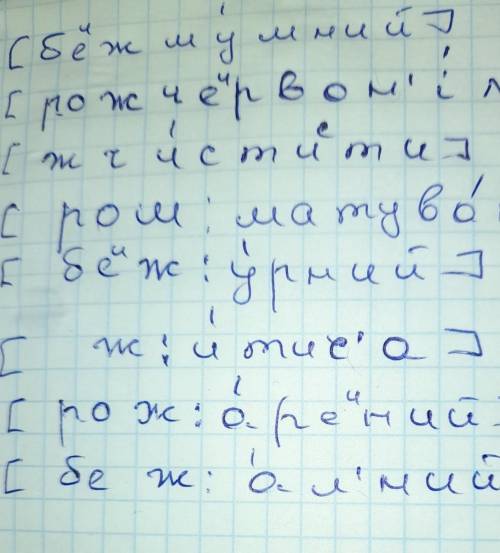 [беиж шу́мний]
[рожчеирвон'і́л
[жчи́стиети]
[рош:матуво́
[беиж:у́рний]
[ж:и́тис'а]
[рож:а́реиний]
[беж:а́л'ний